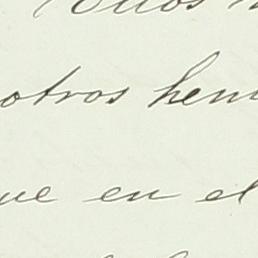 otros hem
ue en el